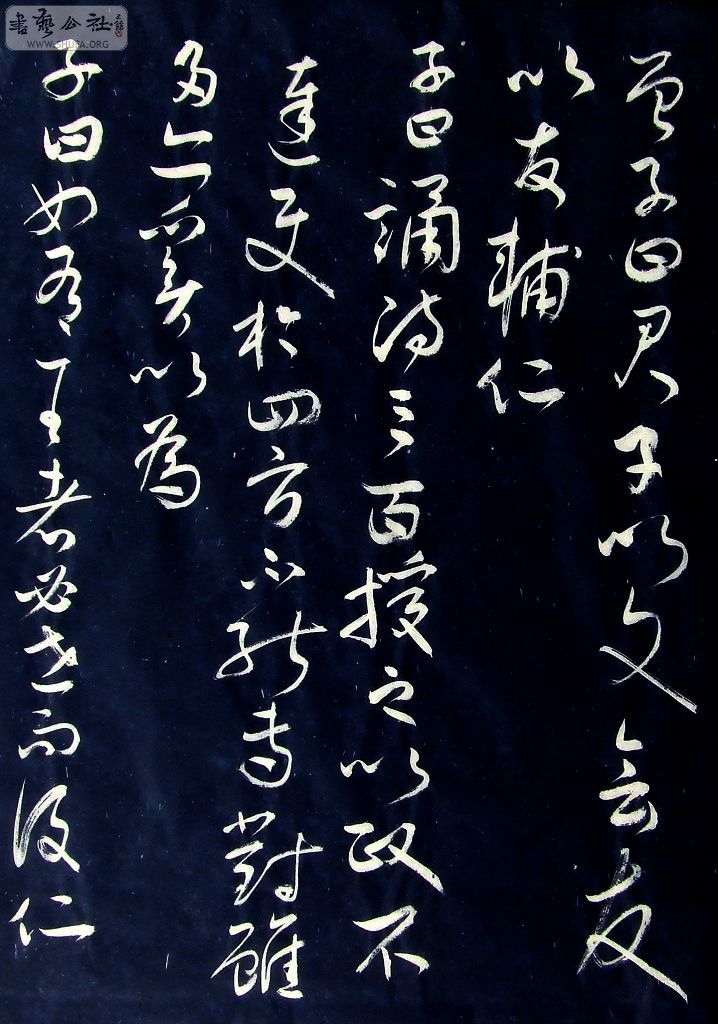 曾子曰君子以文會友
以友輔仁
子曰誦詩三百授之以政不
達使於四方不能專對雖
多亦奚以為
子曰如有王者必世而後仁
書藝公社
WWW.SHUFA.ORG